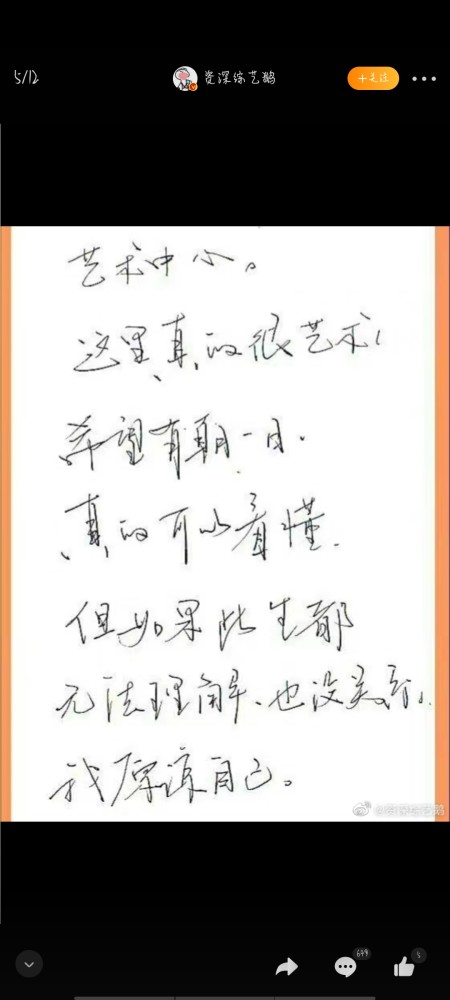 5/12
资深综艺鹅
+关注
艺术中心。
这里真的很艺术，
希望有朝一日.
真的可以看懂.
但如果此生都
无法理解、也没关系。
我原谅自己。
@资深综艺鹅
649
5